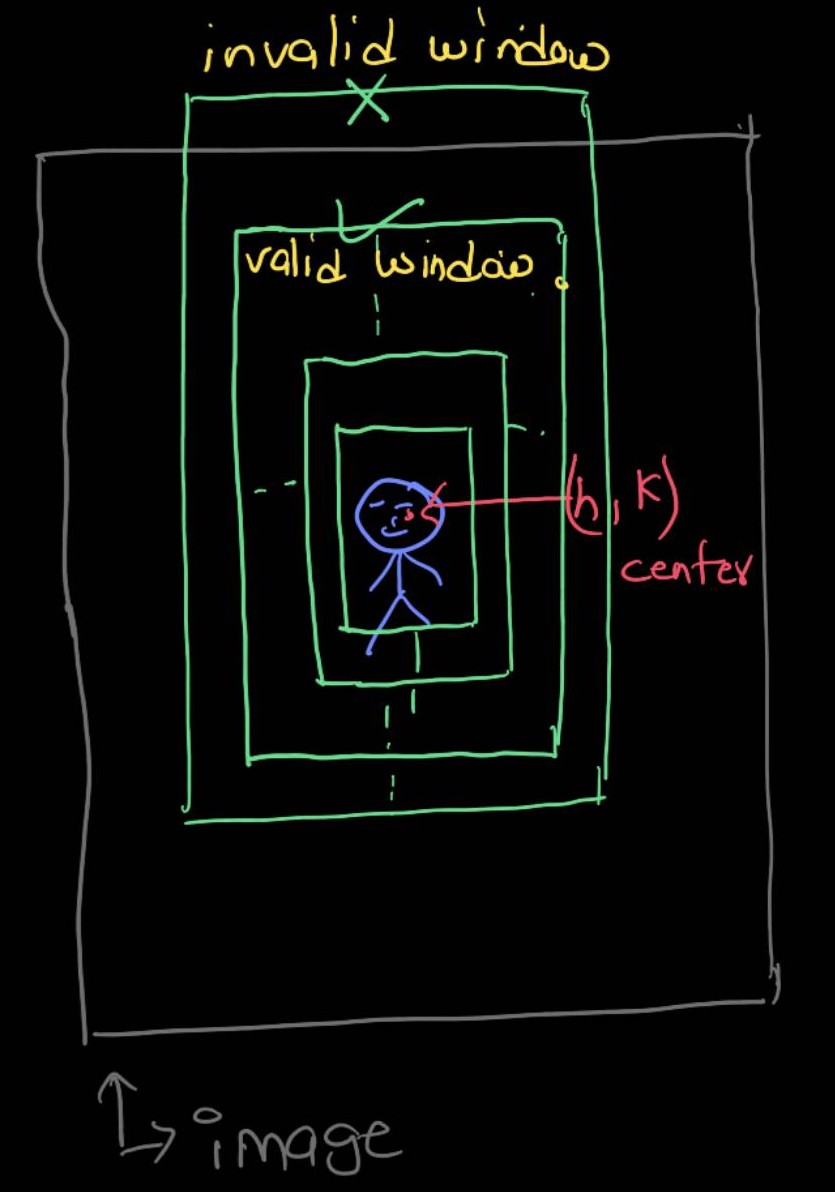 invalid window
valid window
(h, K)
center
image